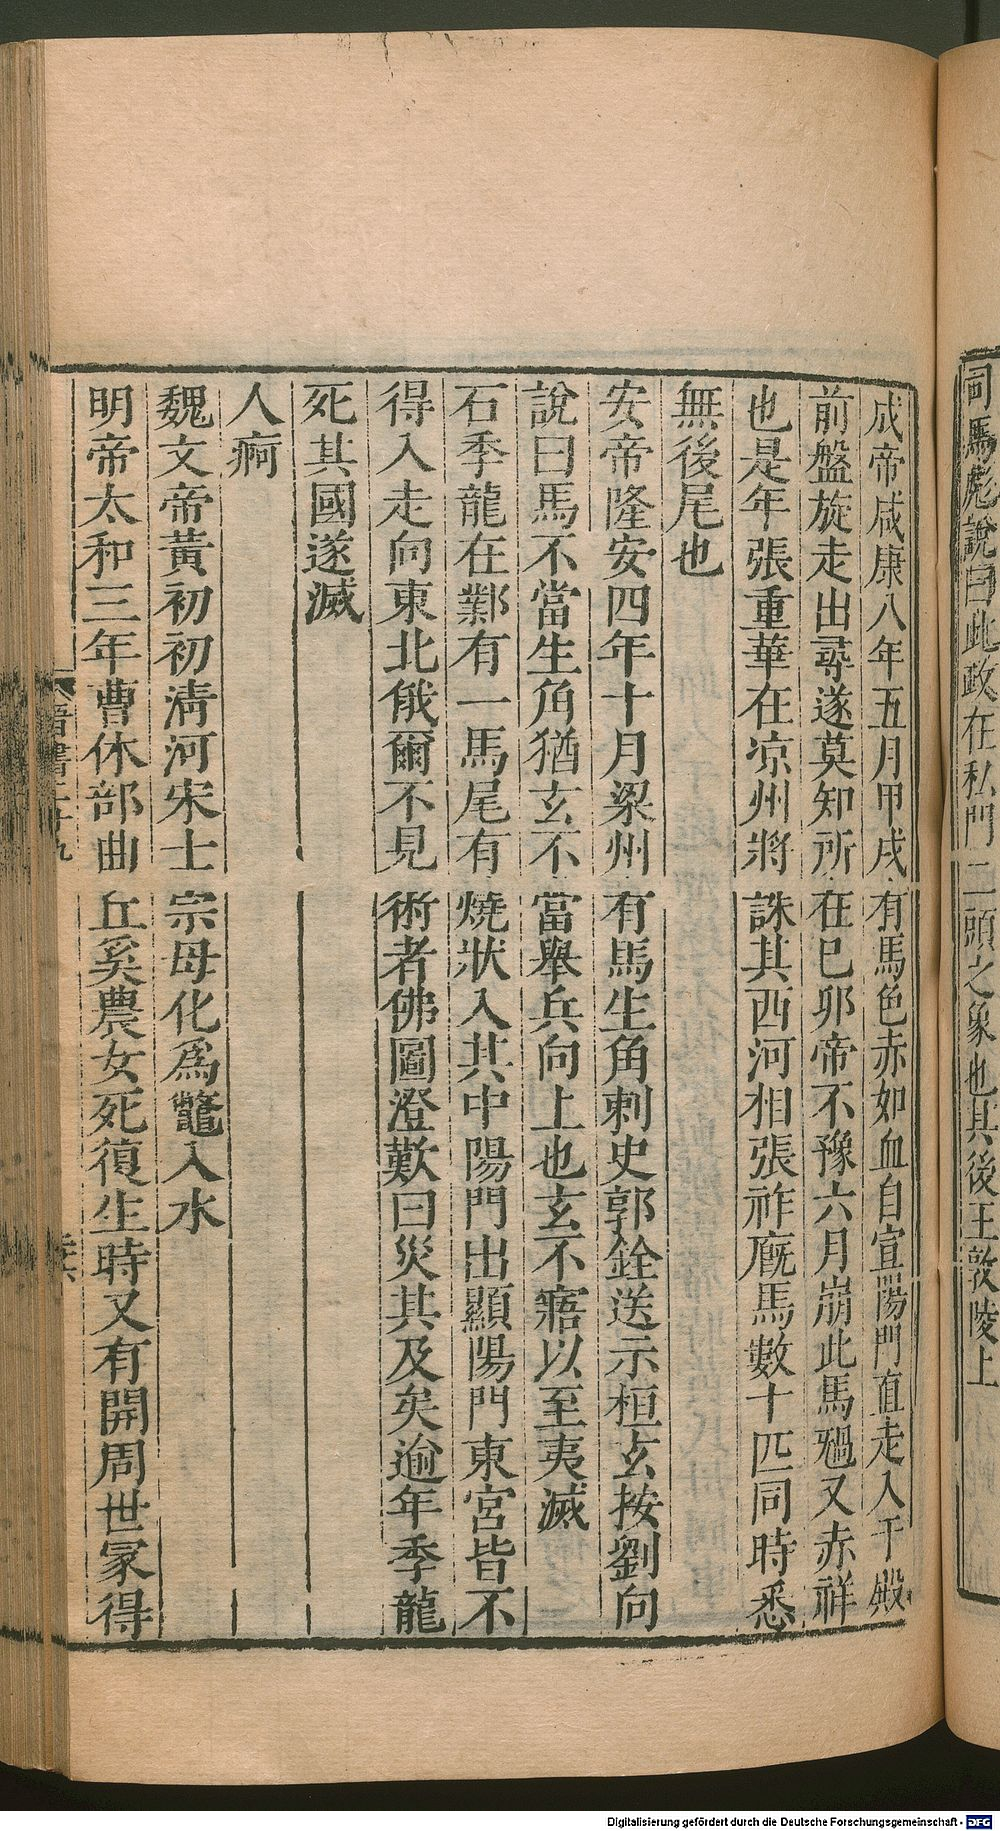 司馬彪說曰此政在私門二頭之象也其後王敦陵上
成帝咸康八年五月甲戌有馬色赤如血自宣陽門直走入于殿
前盤旋走出尋逐莫知所在巳卯帝不豫六月崩此馬禍又赤祥
也是年張重華在涼州將誅其西河相張祚廐馬數十匹同時悉
無後尾也
安帝隆安四年十月梁州有馬生角刺史郭銓送示桓玄按劉向
說曰馬不當生角猶玄不當舉兵向上也玄不寤以至夷滅
石季龍在鄴有一馬尾有燒狀入其中陽門出顯陽門東宮皆不
得入走向東北俄爾不見術者佛圖澄歎曰災其及矣逾年季龍
死其國遂滅
人痾
魏文帝黃初初清河宋士宗母化爲鼈入水
明帝太和三年曹休部曲丘奚農女死復生時又有開周世冢得
晉書二十九
Digitalisierung gefördert durch die Deutsche Forschungsgemeinschaft - DFG